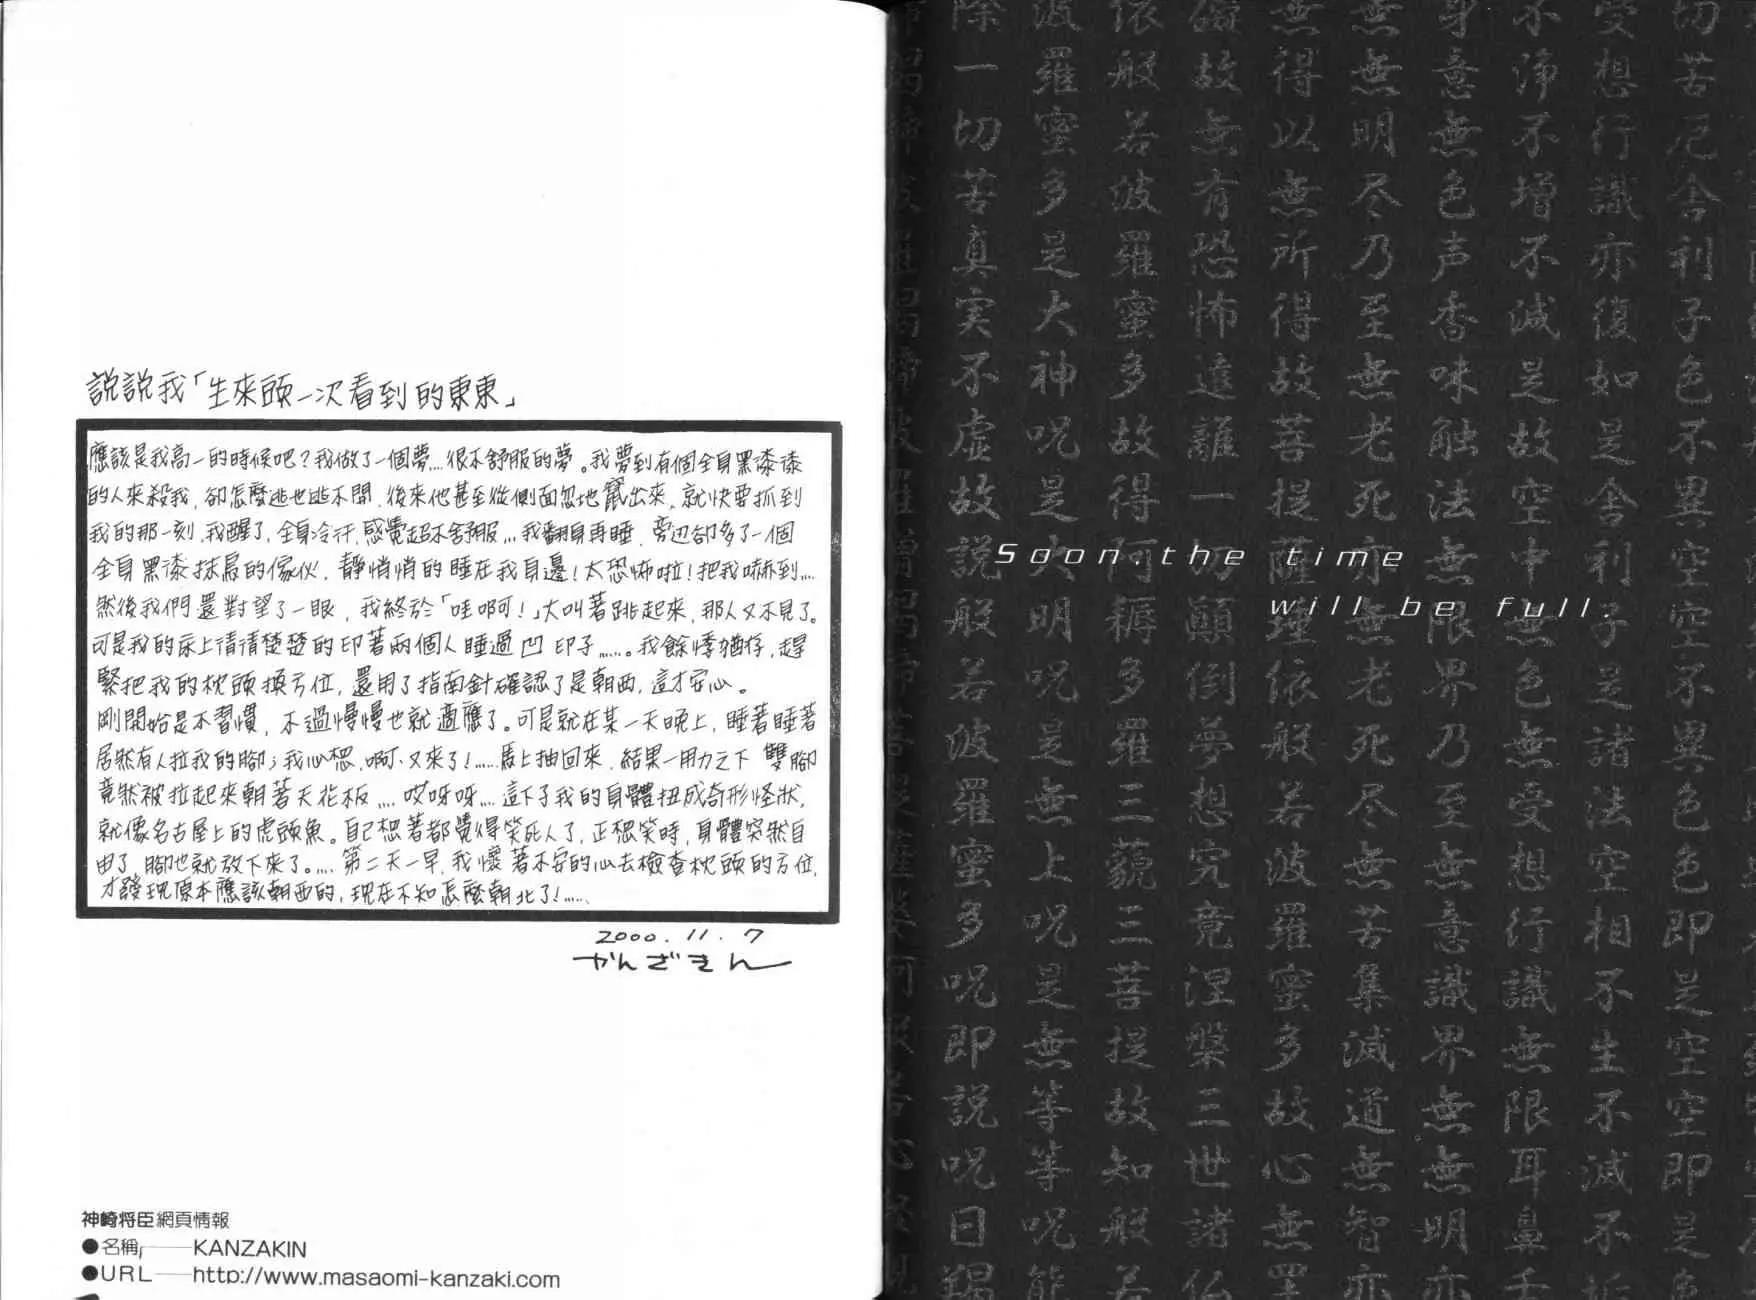 說說我「生來頭一次看到的東東」
應該是我高一的時候吧？我做了一個夢....很不舒服的夢。我夢到有個全身黑漆漆
的人來殺我，卻怎麼逃也逃不開，後來他甚至從側面忽地竄出來，就快要抓到
我的那一刻，我醒了，全身冷汗，感覺超不舒服...我翻身再睡，旁边卻多了一個
全身黑漆抹烏的傢伙，靜悄悄的睡在我身邊！太恐怖啦！把我嚇到....
然後我們還對望了一眼，我終於「哇啊！」大叫著跳起來，那人又不見了。
可是我的床上清清楚楚的印著兩個人睡過凹印子......。我餘悸猶存，趕
緊把我的枕頭換方位，還用了指南針確認了是朝西，這才安心。
剛開始是不習慣，不過慢慢也就適應了。可是就在某一天晚上，睡著睡著
居然有人拉我的腳；我心想，啊、又來了！......馬上抽回來，結果一用力之下雙腳
竟然被拉起來朝著天花板....哎呀呀....這下了我的身體扭成奇形怪狀，
就像名古屋上的虎頭魚。自己想著都覺得笑死人了，正想笑時，身體突然自
由了，腳也就放下來了.....第二天一早，我懷著不安的心去檢查枕頭的方位，
才發現原本應該朝西的，現在不知怎麼朝北了！......
2000.11.7
かんざきん
神崎将臣網頁情報
●名稱——KANZAKIN
●URL——http://www.masaomi-kanzaki.com
切苦厄舍利子色不異空空不異色色即是空空即是色
受想行識亦復如是舍利子是諸法空相不生不滅不垢
不浄不増不減是故空中無色無受想行識無限耳鼻舌
身意無色声香味触法無限界乃至無意識界無無明亦
無無明尽乃至無老死亦無老死尽無苦集滅道無智亦
無得以無所得故菩提薩埵依般若波羅蜜多故心無罣
礙故無有恐怖遠離一切顛倒夢想究竟涅槃三世諸仏
依般若波羅蜜多故得阿耨多羅三藐三菩提故知般若
波羅蜜多是大神呪是大明呪是無上呪是無等等呪能
除一切苦真実不虚故説般若波羅蜜多呪即説呪曰羯
Soon.the time
will be full.